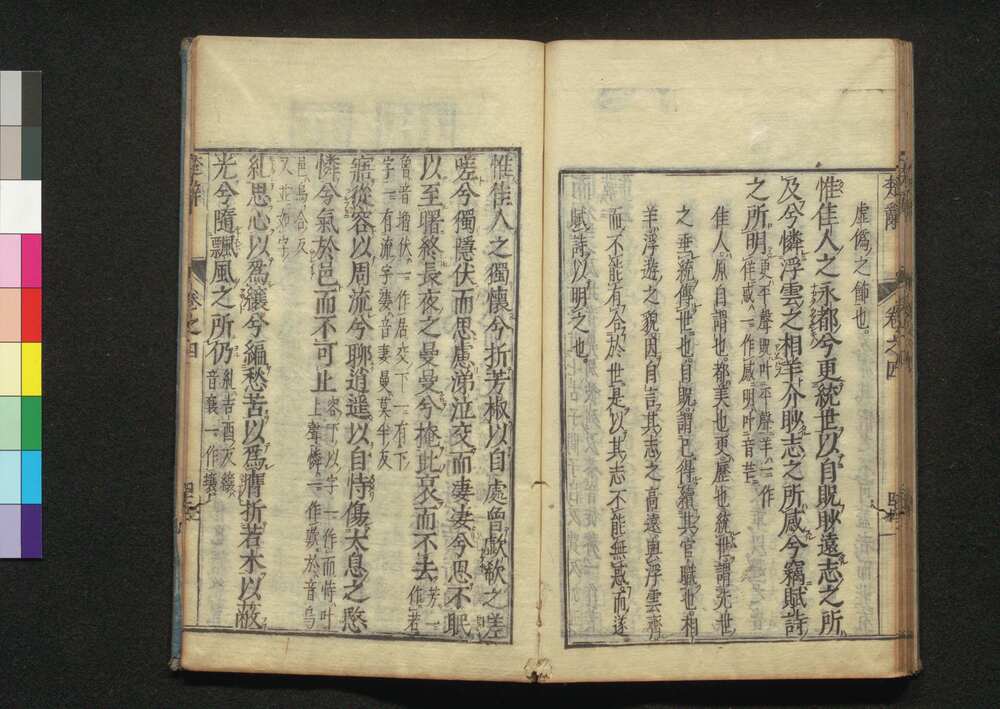 楚辭 卷之四
虛僞之飾也。
惟佳人之永都兮更統世以自貺眇遠志之所
及兮憐浮雲之相羊介眇志之所惑兮竊賦詩
之所明
更平聲貺叶平聲羊一作
佯惑一作感明叶音芒
佳人原自謂也都美也更歷也統世謂先世
之垂統傳世也自貺謂己得續其官職也相
羊浮遊之貌因自言其志之高遠與浮雲齊
而不能有合於世是以其志不能無惑而遂
賦詩以明之也
惟佳人之獨懷兮折芳椒以自處曾歔欷之嗟
嗟兮獨隱伏而思慮涕泣交而凄凄兮思不眠
以至曙終長夜之曼曼兮掩此哀而不去
芳一
作若
曾音增伏一作居交下一有下
字一有流字凄音妻曼莫半反
寤從容以周流兮聊逍遙以自恃傷太息之愍
憐兮氣於邑而不可止
容下以字一作而恃叶
上聲憐一作歎於音烏
邑烏合反
又並如字
糺思心以爲纕兮編愁苦以爲膺折若木以蔽
光兮隨飄風之所仍
糺吉酉反纕
音襄一作攘
楚辭 卷之四